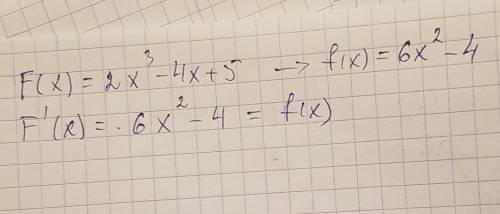 F(x) = 2x³ - 4x + 5 → f(x) = 6x² - 4
F'(x) = 6x² - 4 = f(x)